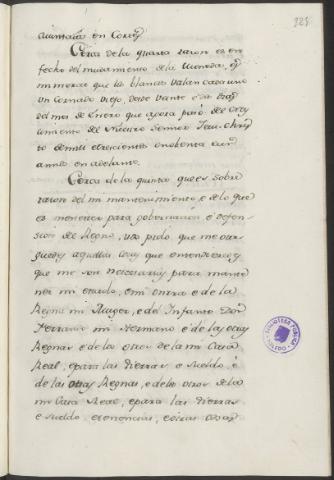 323
Cerca de la quarta razon es en
fecho del mudamiento de la Moneda, q̃
mi merced que las blancas valan cada uno
un Cornado Viejo, desde veinte e dos dias
del mes de Enero que agora pasó del Naci
miento de Nuestro Señor Jesu-Chris
to de mil e trescientos ochenta e
annos en adelante.
Cerca de la quinta que es sobre
razon del mi mantenimiento, e de lo que
es menester para gobernacion e defen-
sion del Regno, vos pido que me otor
guedes aquellas cosas que entendieredes
que me son necesarias para mante
ner mi estado, e mi onrra e de la
Regna mi Muger, e del Infante Don
Ferrando mi Hermano e de las otras
Regnas e de los otros de la mi Casa
Real, e para las tierras e sueldo, e
de las otras Regnas, e de los otros de la
mi Casa Real, e para las tierras
e sueldo, e tenencias, e otras cosas
BIBLIOTECA PUBLICA
TOLEDO